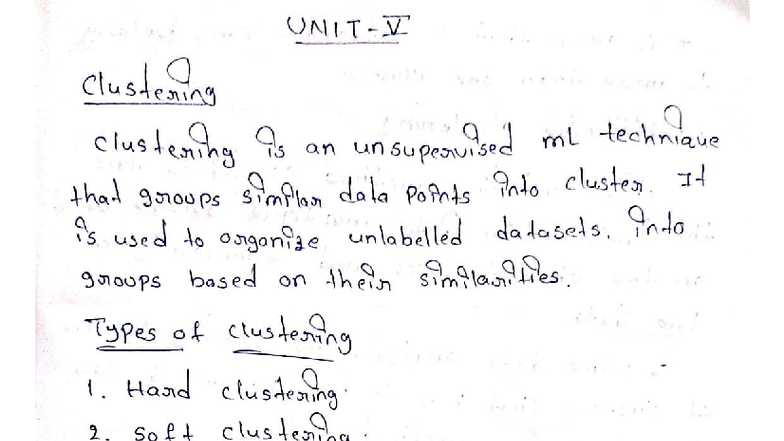 UNIT-V
Clustering
Clustering is an unsupervised ML technique
that groups similar data points into cluster. It
is used to organize unlabelled datasets. into
groups based on their similarities.
Types of clustering
1. Hard clustering.
2. Soft clustering.